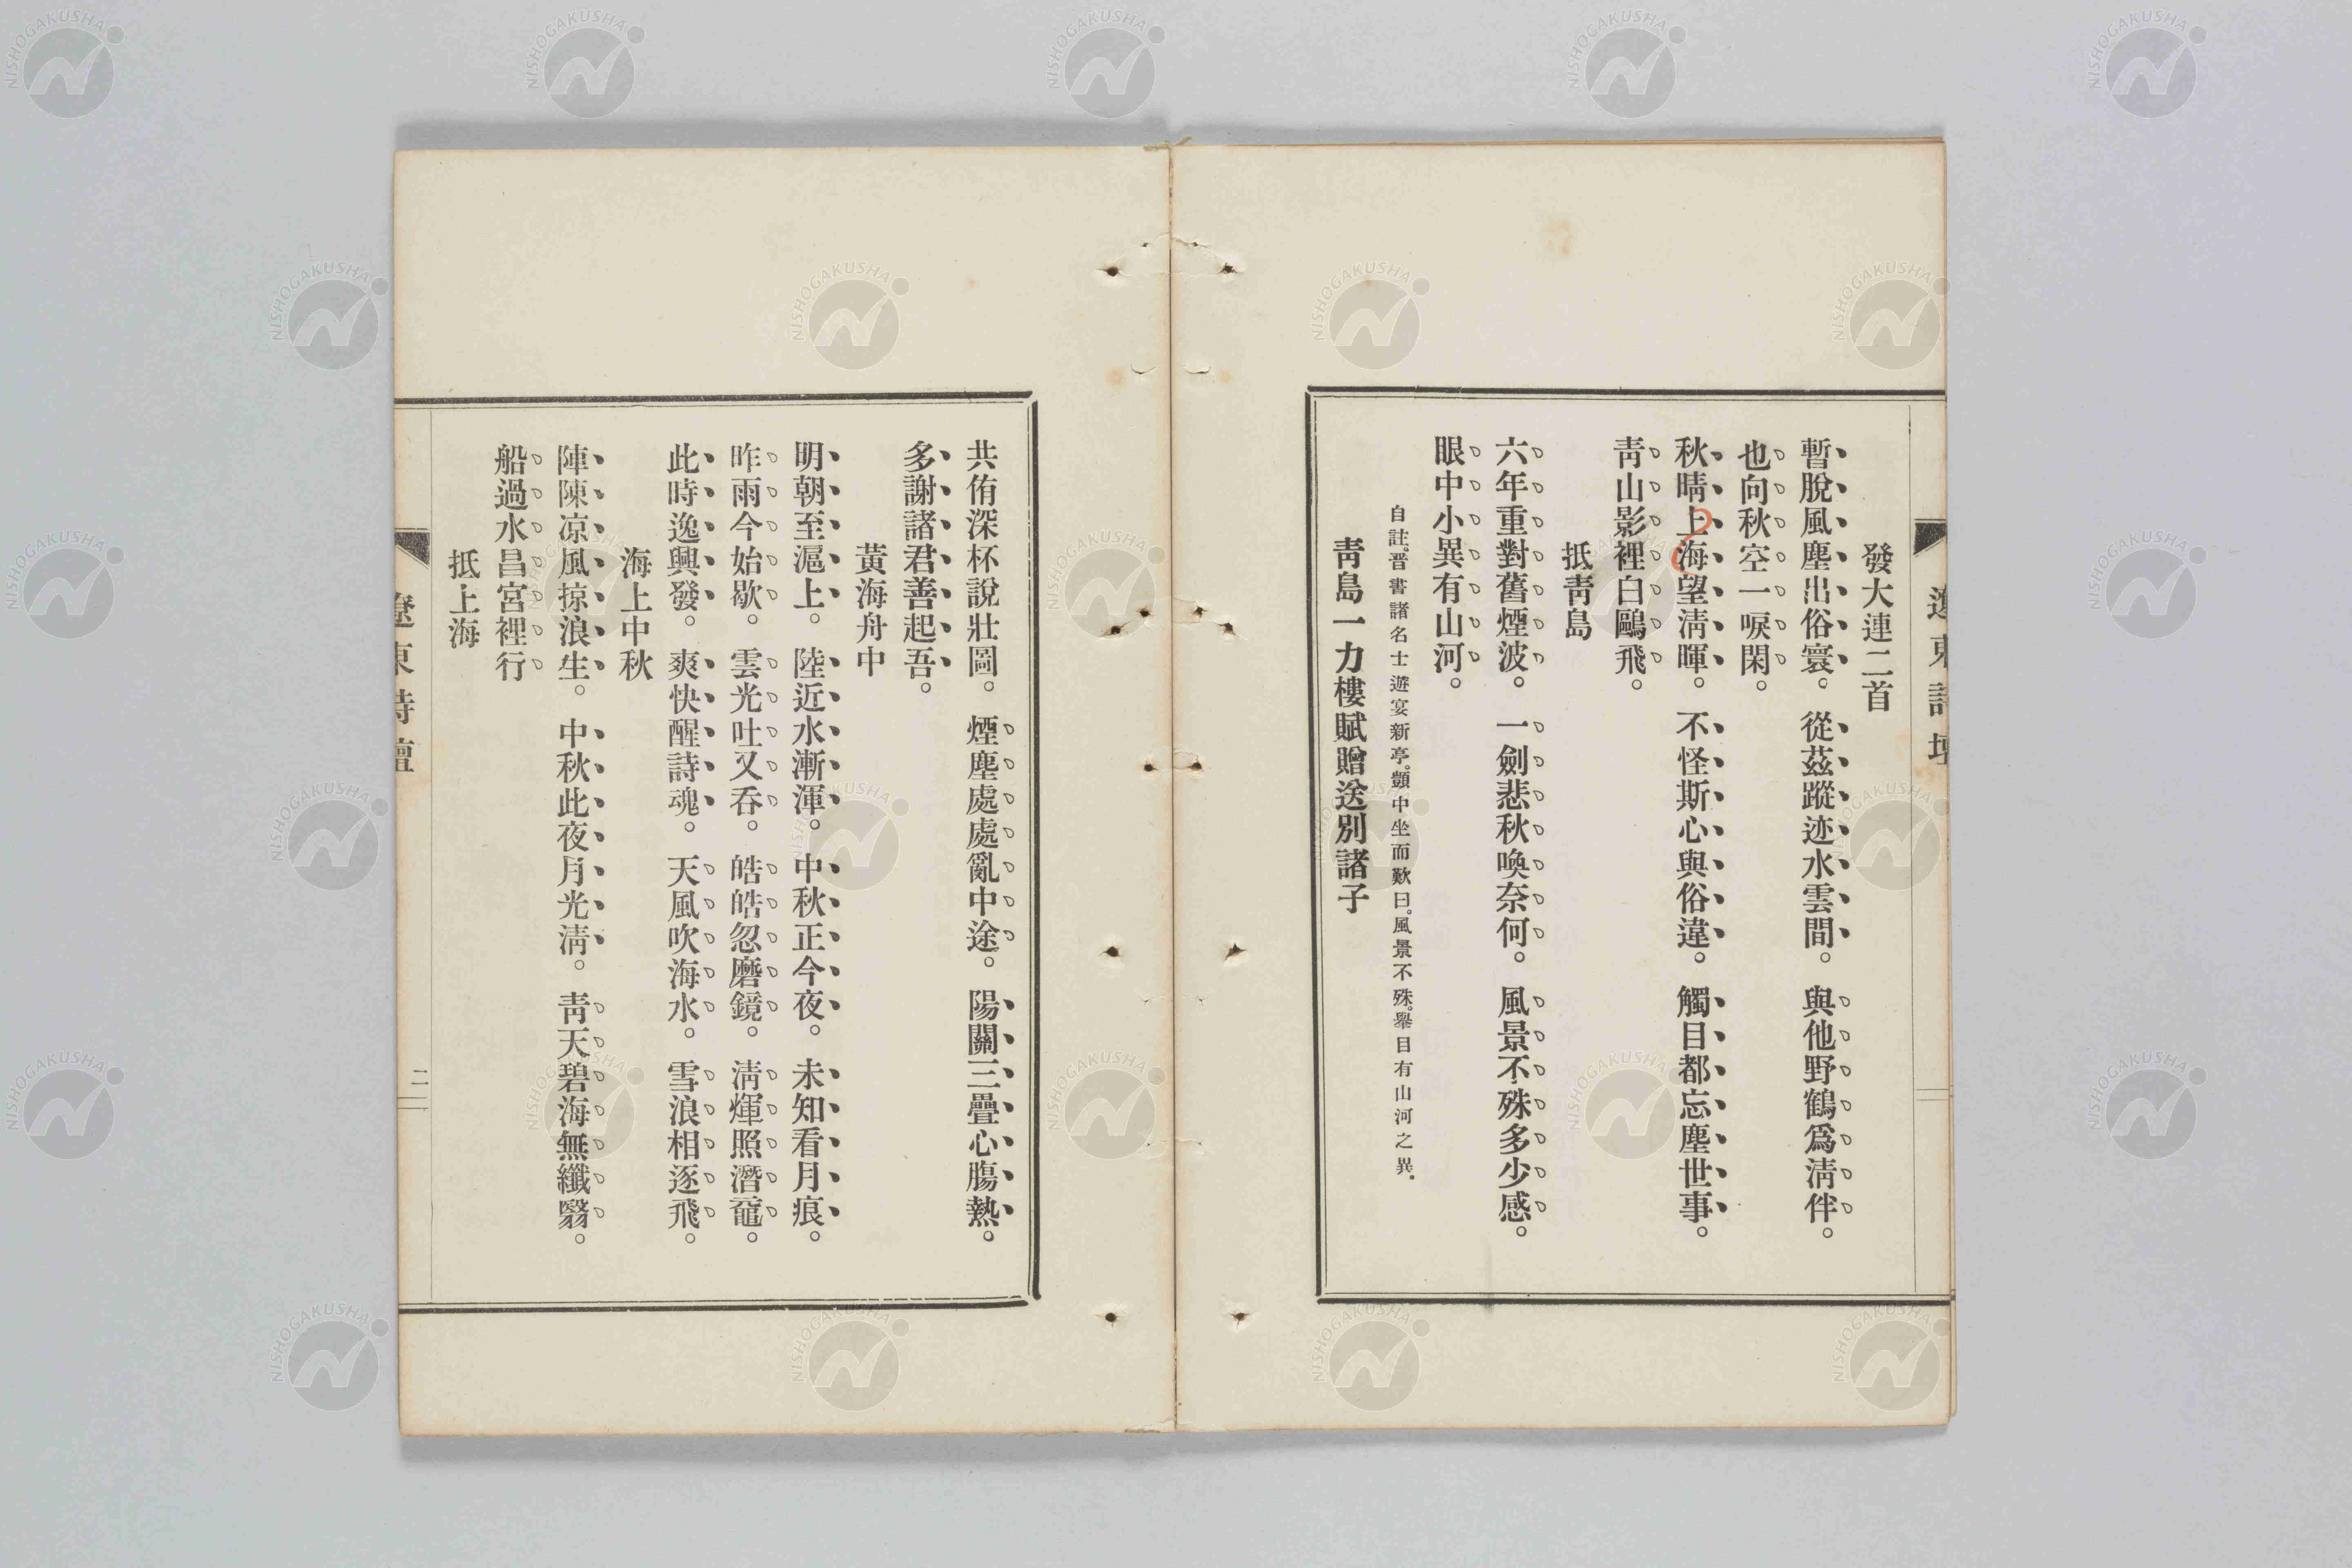 遼東詩壇
發大連二首
暫脫風塵出俗寰。從茲蹤迹水雲間。與他野鶴爲淸伴。
也向秋空一唳閑。
秋晴上海望淸暉。不怪斯心與俗違。觸目都忘塵世事。
靑山影裡白鷗飛。
抵靑島
六年重對舊煙波。一劍悲秋喚奈何。風景不殊多少感。
眼中小異有山河。
自註。晋書諸名士遊宴新亭。顗中坐而歎曰。風景不殊。擧目有山河之異.
靑島一力樓賦贈送別諸子
共侑深杯說壯圖。煙塵處處亂中途。陽關三疊心膓熱。
多謝諸君善起吾。
黃海舟中
明朝至滬上。陸近水漸渾。中秋正今夜。未知看月痕。
昨雨今始歇。雲光吐又呑。皓皓忽磨鏡。淸輝照潛黿。
此時逸興發。爽快醒詩魂。天風吹海水。雪浪相逐飛。
海上中秋
陣陳凉風掠浪生。中秋此夜月光淸。靑天碧海無纖翳。
船過水昌宮裡行
抵上海
遼東詩壇
二
NISHOGAKUSHA